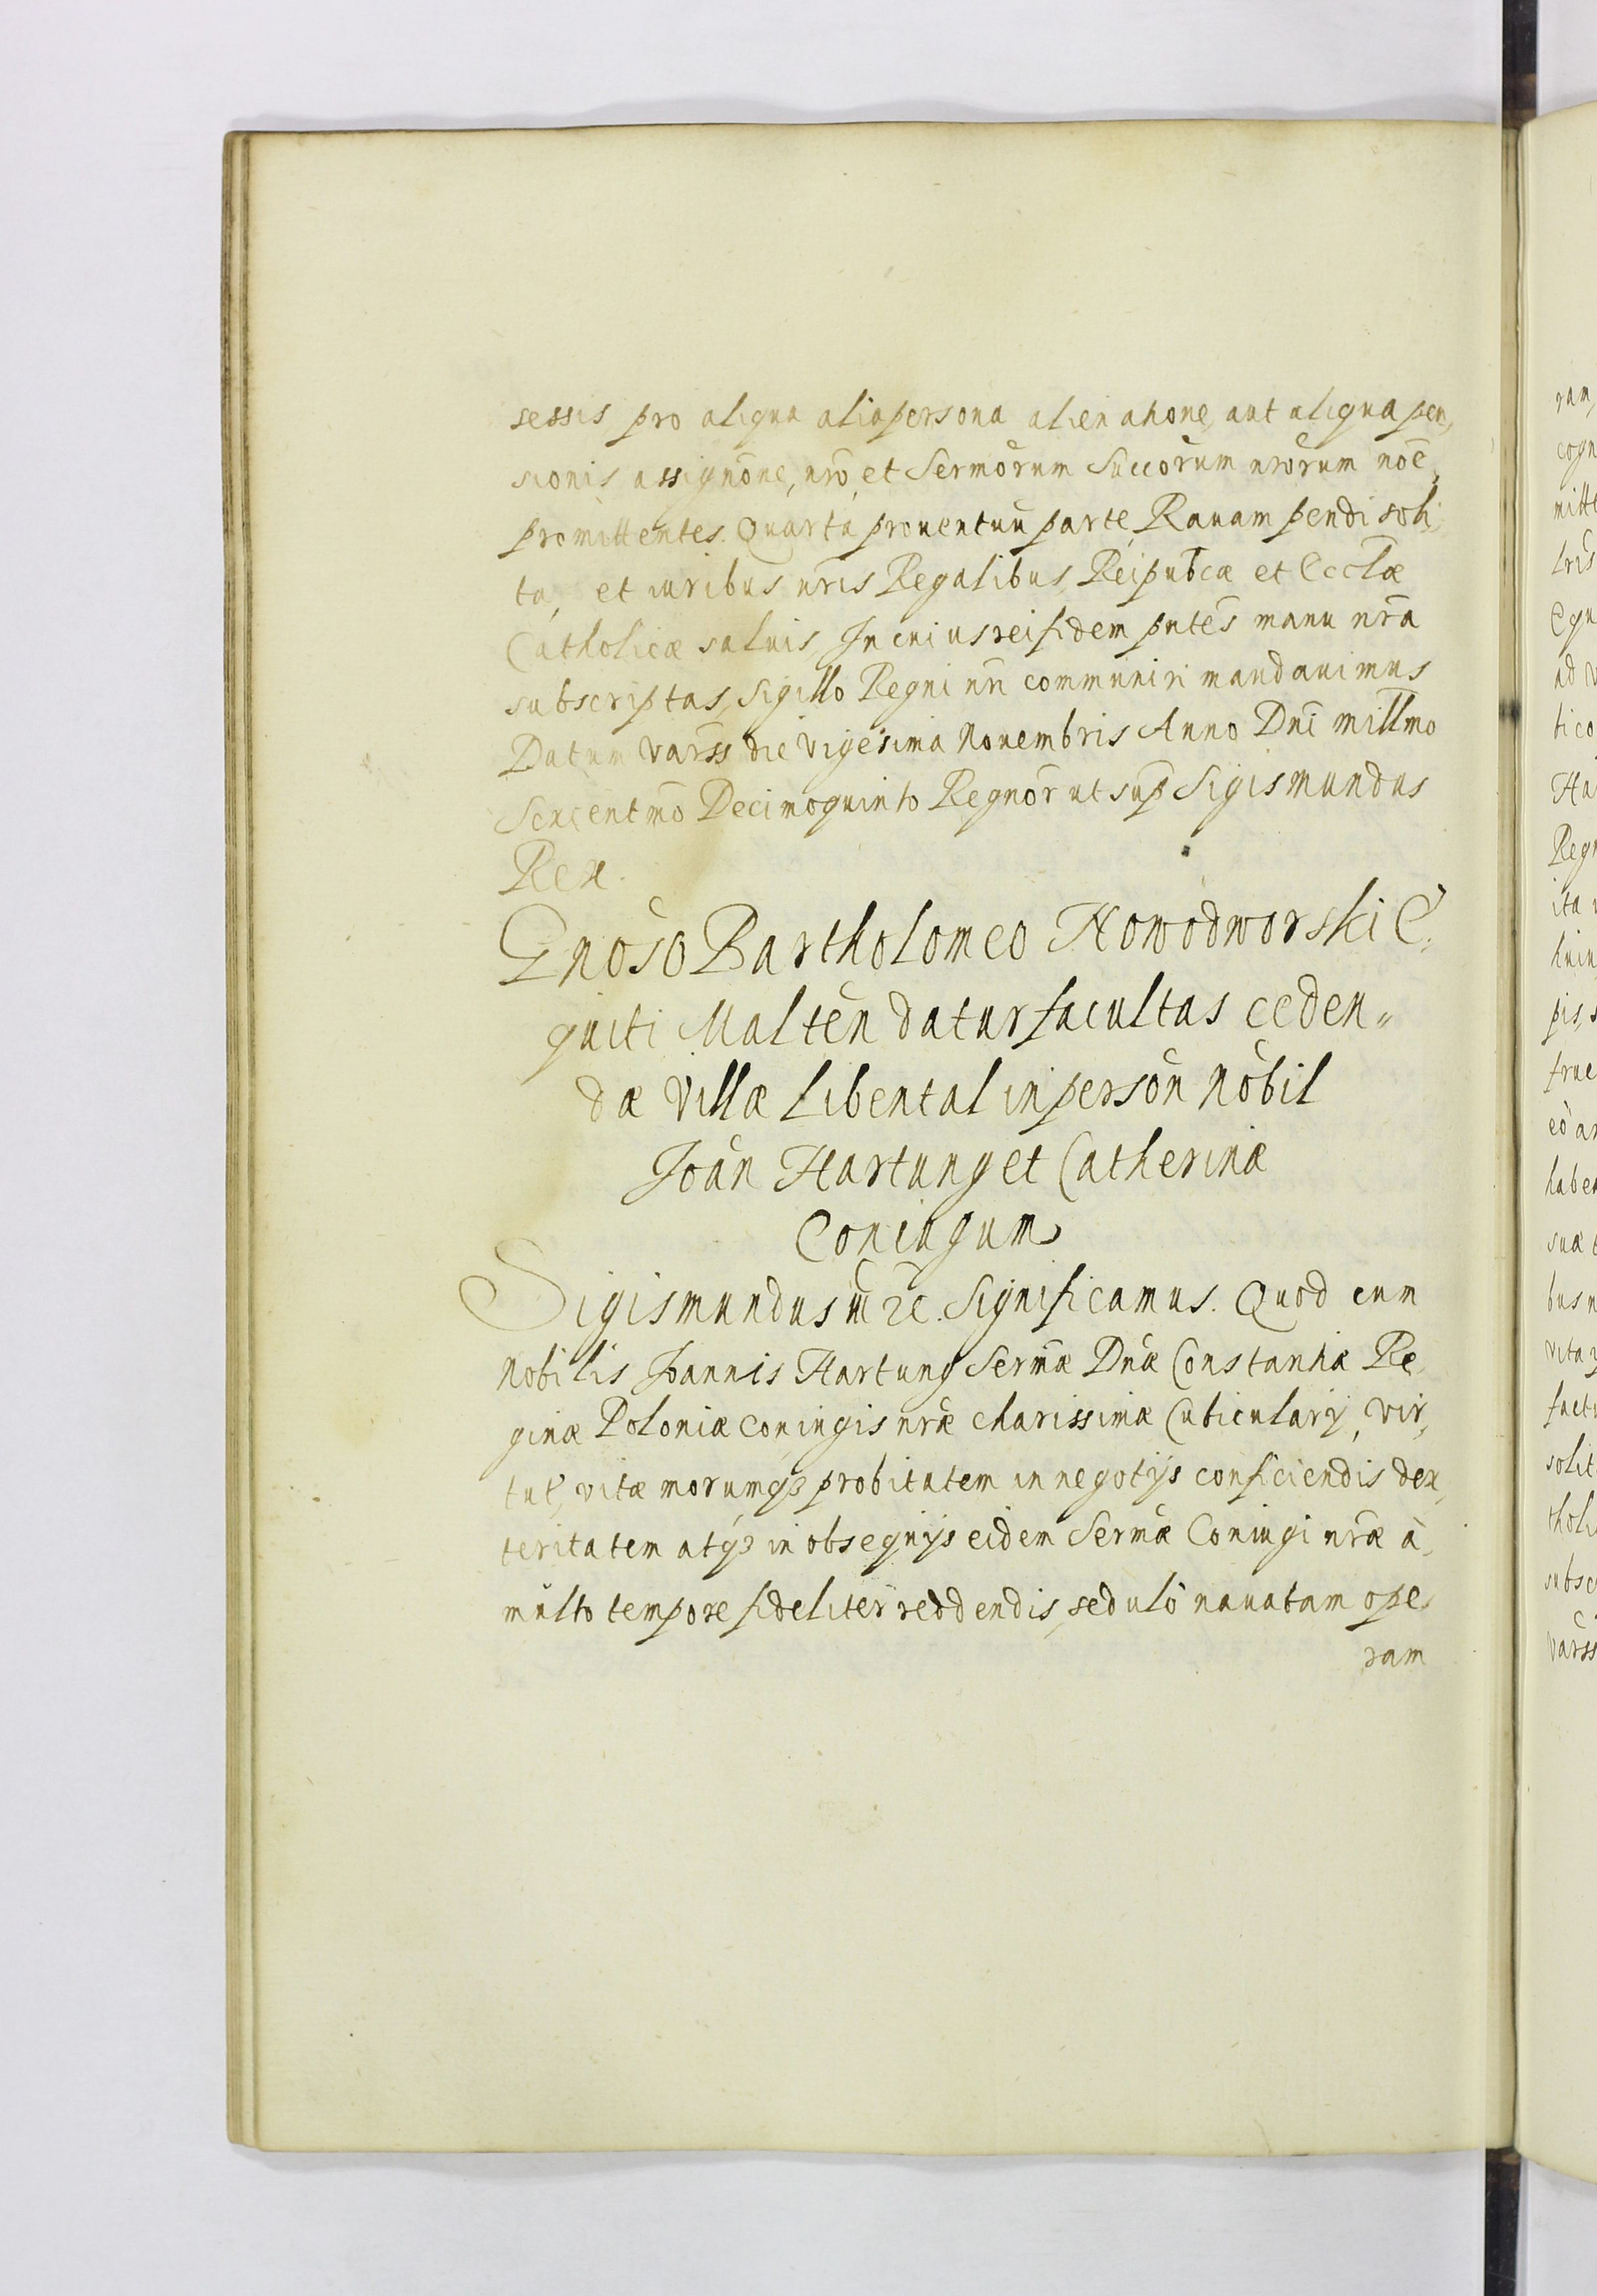 sessis pro aliqua alia persona alienatione, aut aliqua pen,
sionis assignõne, nr̃o, et Sermõrum Succõrum nr̃orum nõe,
promittentes. Quarta prouentuũ parte, Rauam pendi soli,
ta, et iuribus nr̃is Regalibus, Reipub̃cæ et Eccl̃æ
Catholicæ saluis, In cuius rei fidem pñtes manu nr̃a
subscriptas, Sigillo Regni nr̃i communiri mandauimus
Datum Varss̃ die Vigesima Nouembris Anno Dñi mill̃mo
Sexcentm̃o Decimoquinto Regnor̃ ut sup̃ Sigismundus
Rex.
Gnõso Bartholomeo Nowodworski E,
quiti Malteñ datur facultas ceden„
dæ Villæ Libental in persoñ Nobil̃
Joañ Hartung et Catherinæ
Coniugum
Sigismundus iii ꝛc. Significamus. Quod cum
Nobilis Joannis Hartung Serm̃æ Dñæ Constantiæ Re,
ginæ Poloniæ coniugis nr̃æ charissimæ Cubicularij, vir,
tut̃, vitæ morumqꝫ probitatem in negotijs conficiendis dex,
teritatem atqꝫ in obsequijs eidem Serm̃æ Coniugi nr̃æ à
multo tempore fideliter reddendis, sedulò nauatam ope,
ram
ram
cogn
mitt
lr̃is
Equ
ad v
tico
Ha
Regn
ita
huiu
pis, s
fruc
eò ar
haben
suæ
bus n
vita
fact
solit
thol
subsc
Varss